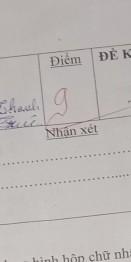 Điểm
ĐỀ K
9
Nhận xét
hình hộp chữ nh